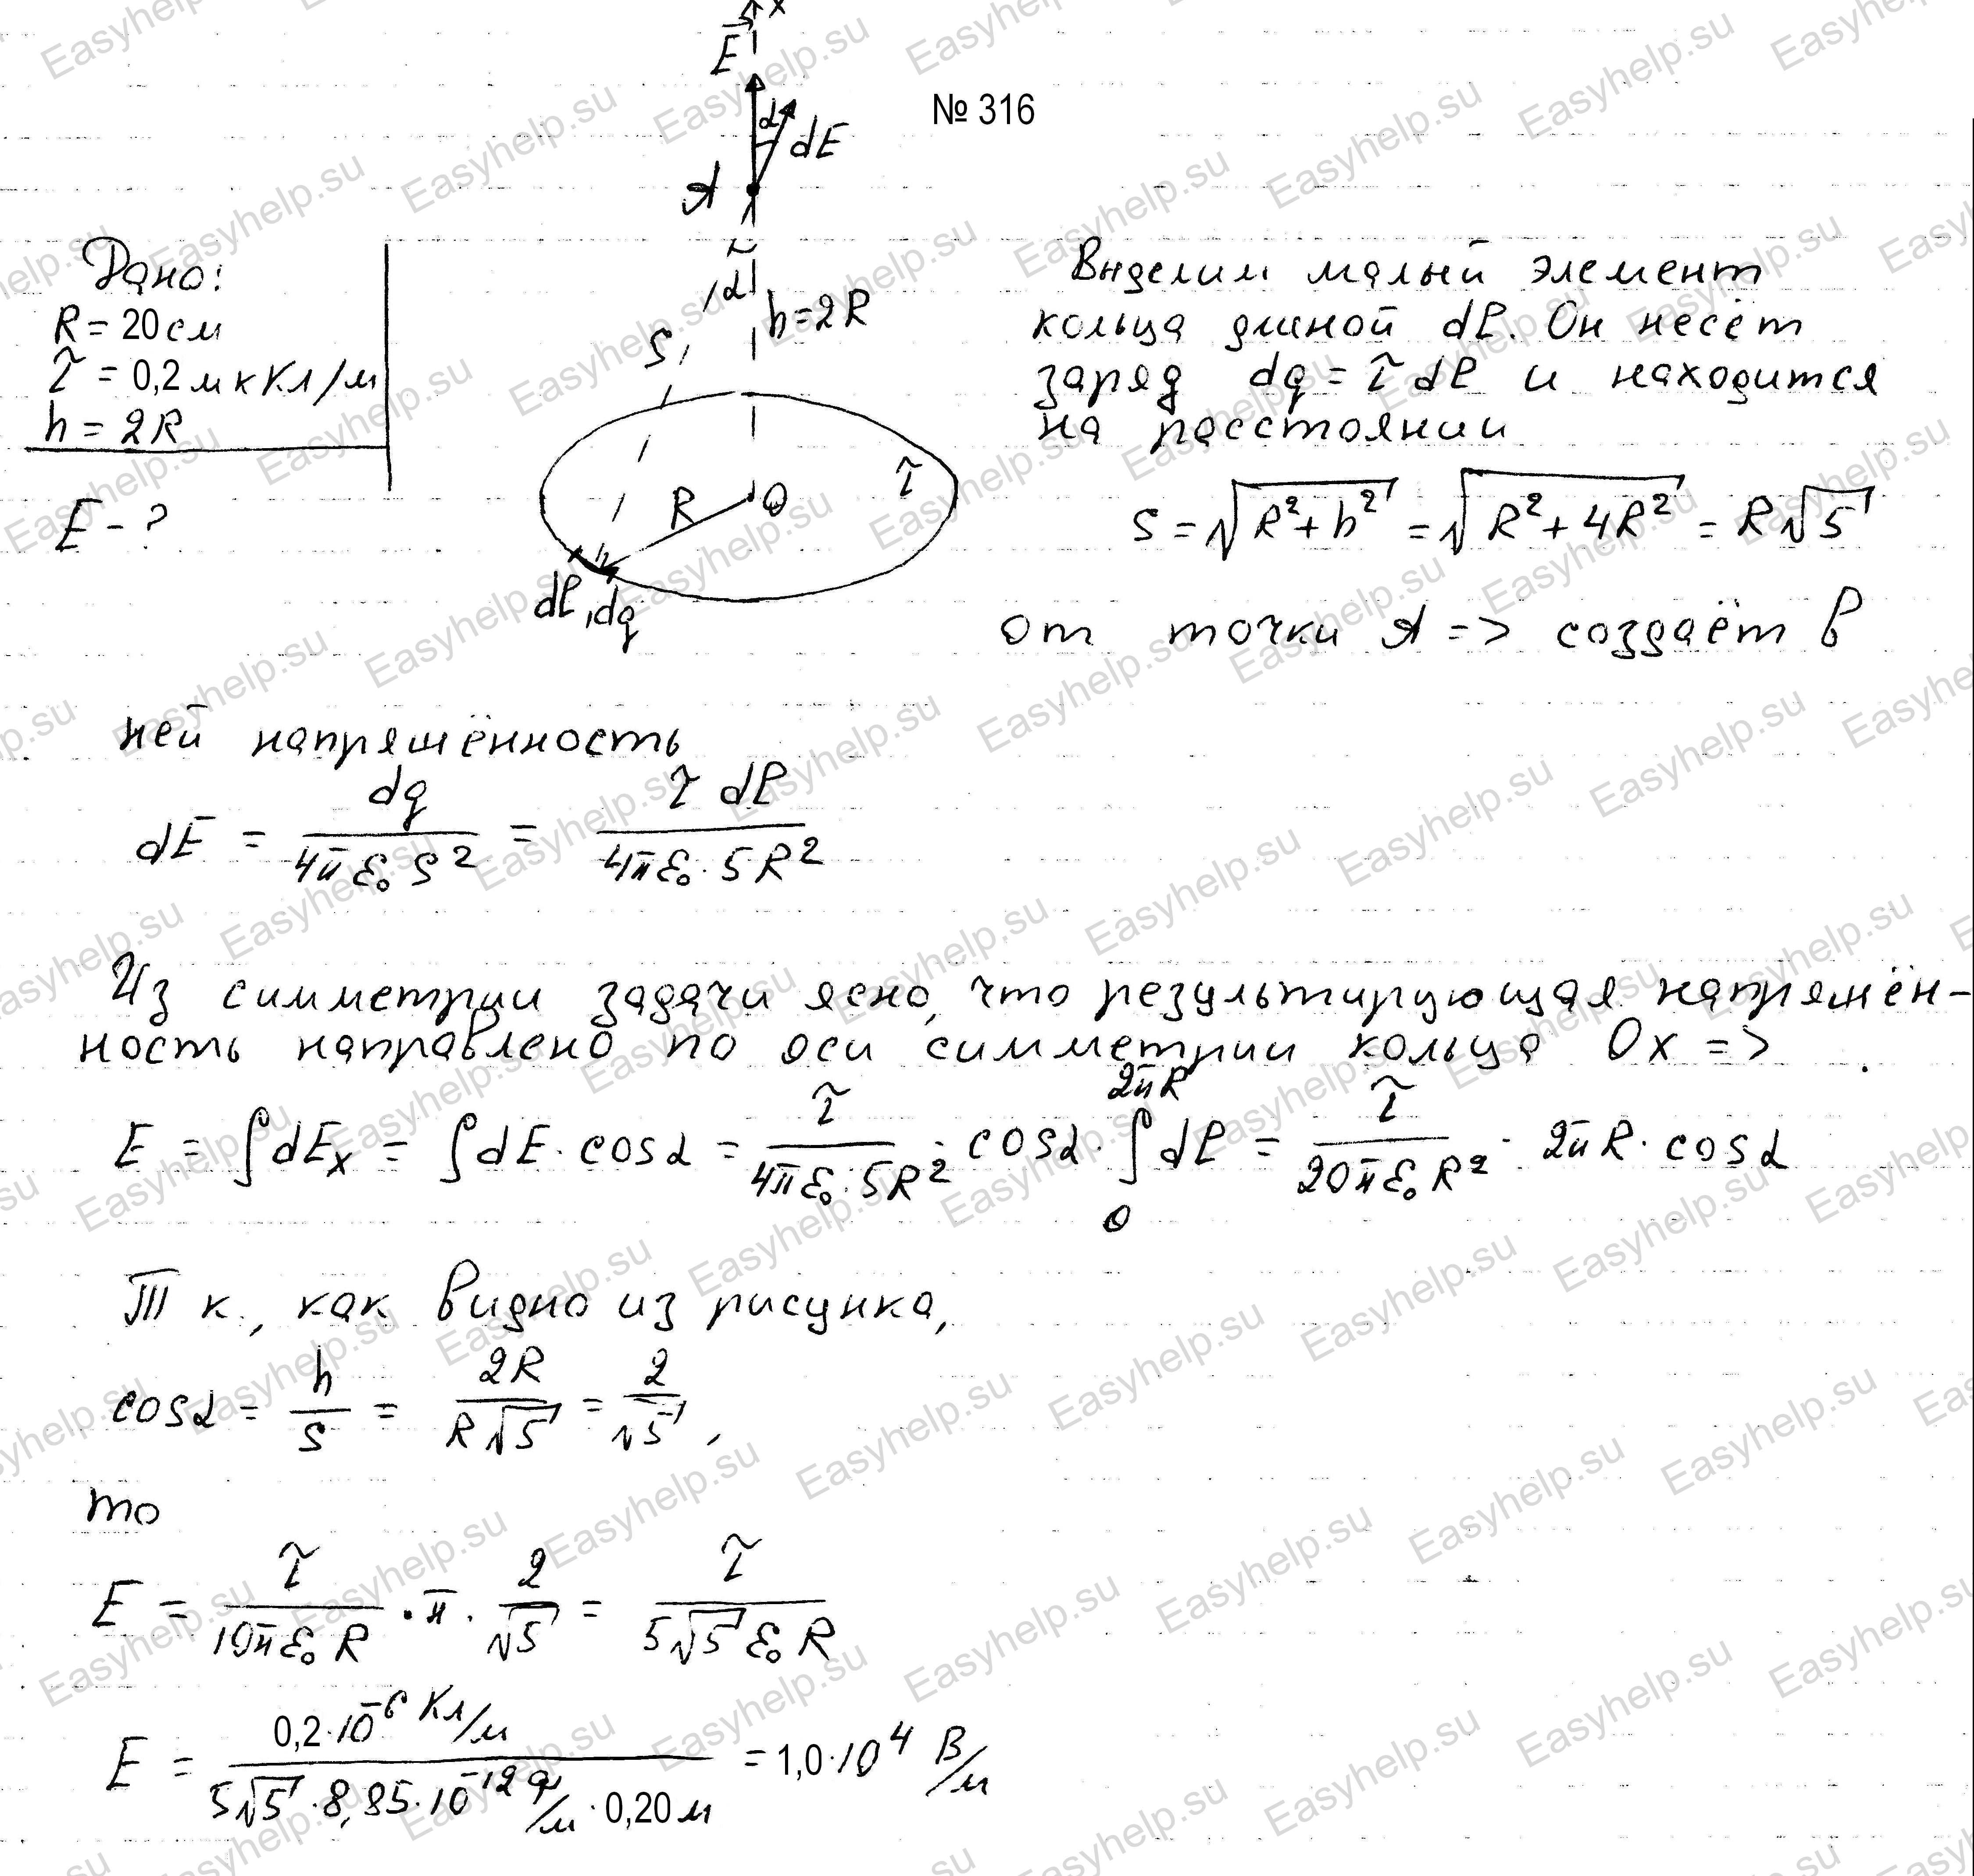 x
E
№ 316
α
dE
A
Дано:
R = 20 см
τ = 0,2 мкКл/м
h = 2R
E - ?
α
S
h = 2R
R
O
τ
dℓ, dq
Выделим малый элемент
кольца длиной dℓ. Он несёт
заряд dq = τ dℓ и находится
на расстоянии
s = √(R² + h²) = √(R² + 4R²) = R√5
от точки A => создаёт в
ней напряжённость
dE = dq / (4πε₀ s²) = τ dℓ / (4πε₀ · 5R²)
Из симметрии задачи ясно, что результирующая напряжён-
ность направлено по оси симметрии кольца Ox =>
E = ∫dEₓ = ∫dE · cosα = τ / (4πε₀ · 5R²) · cosα · ∫₀^(2πR) dℓ = τ / (20πε₀R²) · 2πR · cosα
Т к., как видно из рисунка,
cosα = h/s = 2R / (R√5) = 2/√5,
то
E = τ / (10πε₀R) · π · 2/√5 = τ / (5√5 ε₀R)
E = 0,2·10⁻⁶ Кл/м / (5√5 · 8,85·10⁻¹² Ф/м · 0,20 м) = 1,0·10⁴ В/м
Easyhelp.su